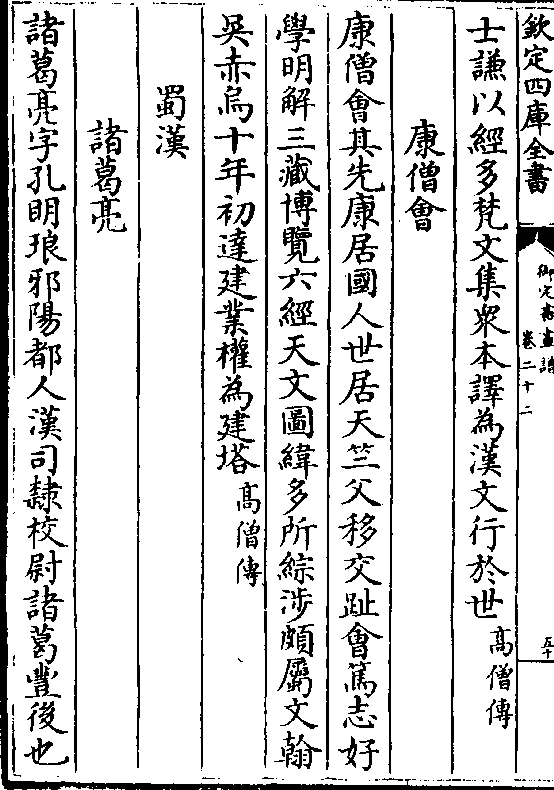 欽定四庫全書
御定書畫譜
卷二十二
五十
士謙以經多梵文集衆本譯為漢文行於世高僧傳
康僧會
康僧會其先康居國人世居天竺父移交趾會篤志好
學明解三藏博覽六經天文圖緯多所綜涉頗屬文翰
吳赤烏十年初達建業權為建塔高僧傳
蜀漢
諸葛亮
諸葛亮字孔明琅邪陽都人漢司隸校尉諸葛豐後也